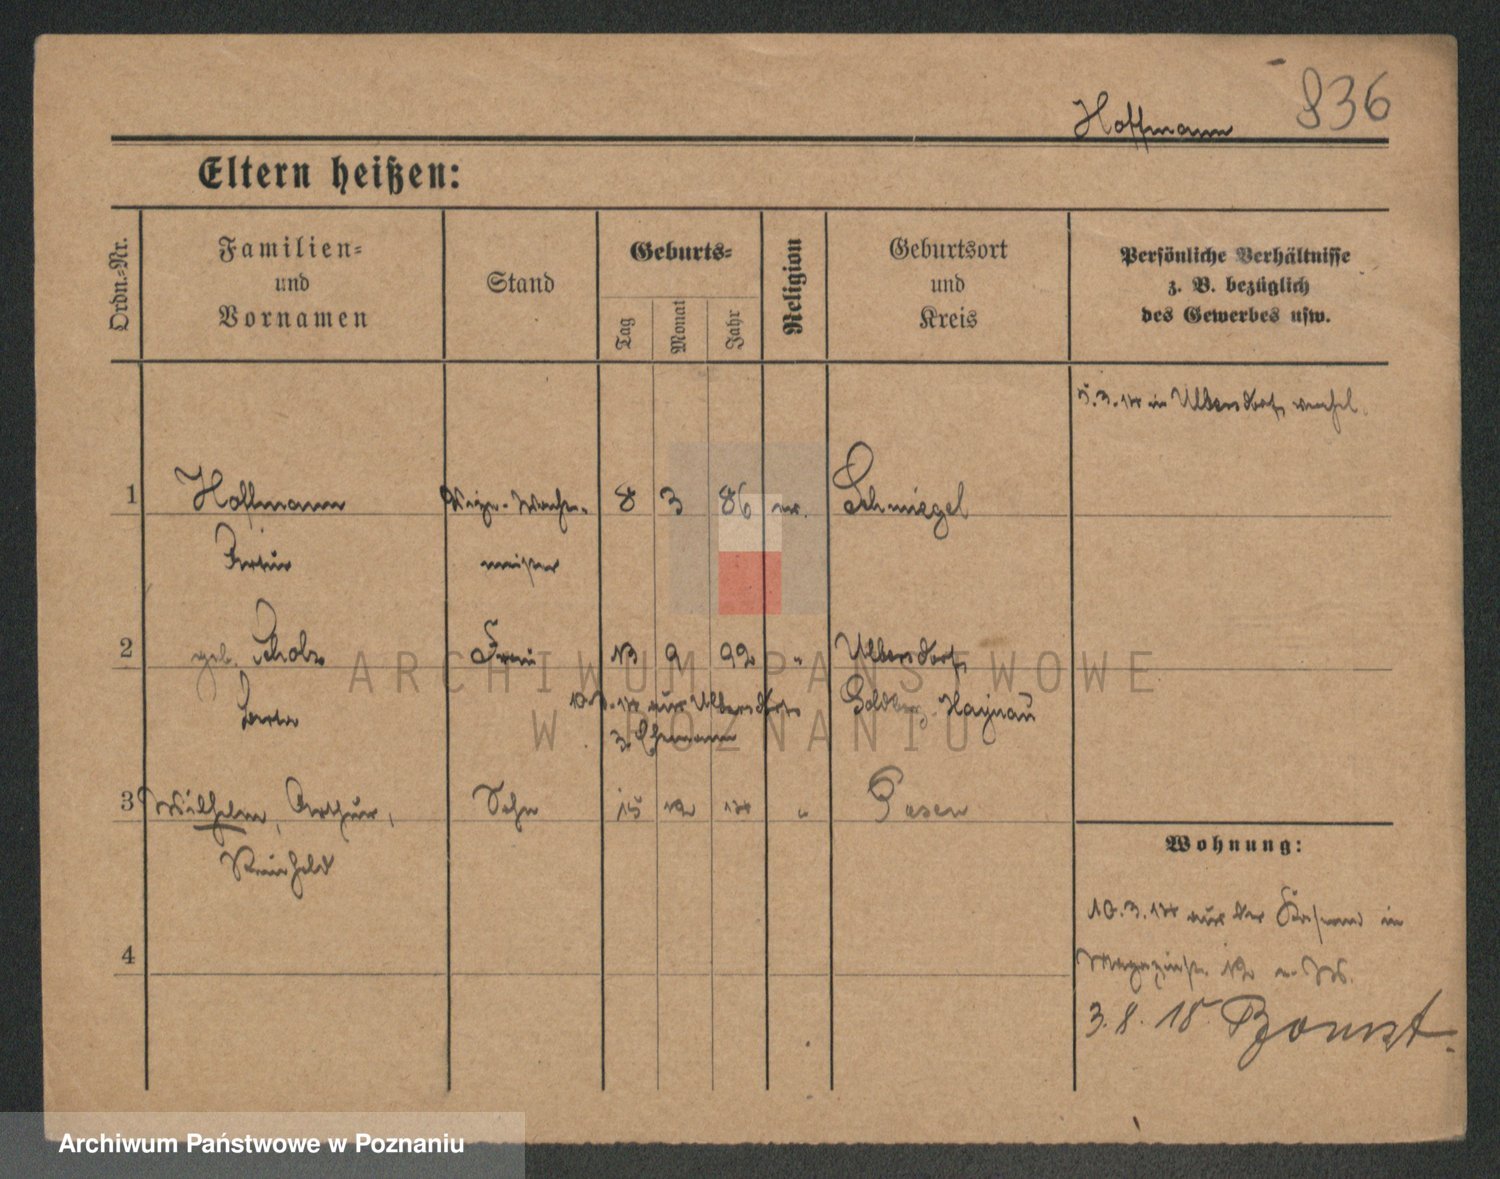 Hoffmann 836
Eltern heißen:
Ordn.-Nr.
Familien-
und
Vornamen
Stand
Geburts-
Tag
Monat
Jahr
Religion
Geburtsort
und
Kreis
Persönliche Verhältnisse
z. B. bezüglich
des Gewerbes usw.
in Ulbersdorf
1 Hoffmann 8 3 86 ev. Schmiegel
Artur meister
2 geb. Scholz Frau 13 9 92 " Ulbersdorf
aus Ulbersdorf Goldberg-Haynau
z. Ehemann
3 Wilhelm, Arthur, Sohn 15 12 " Posen
Reinhold
Wohnung:
10.3. aus der in
4
Magazinstr. 12
3.8.18. Bomst.
ARCHIWUM PAŃSTWOWE
W POZNANIU
Archiwum Państwowe w Poznaniu